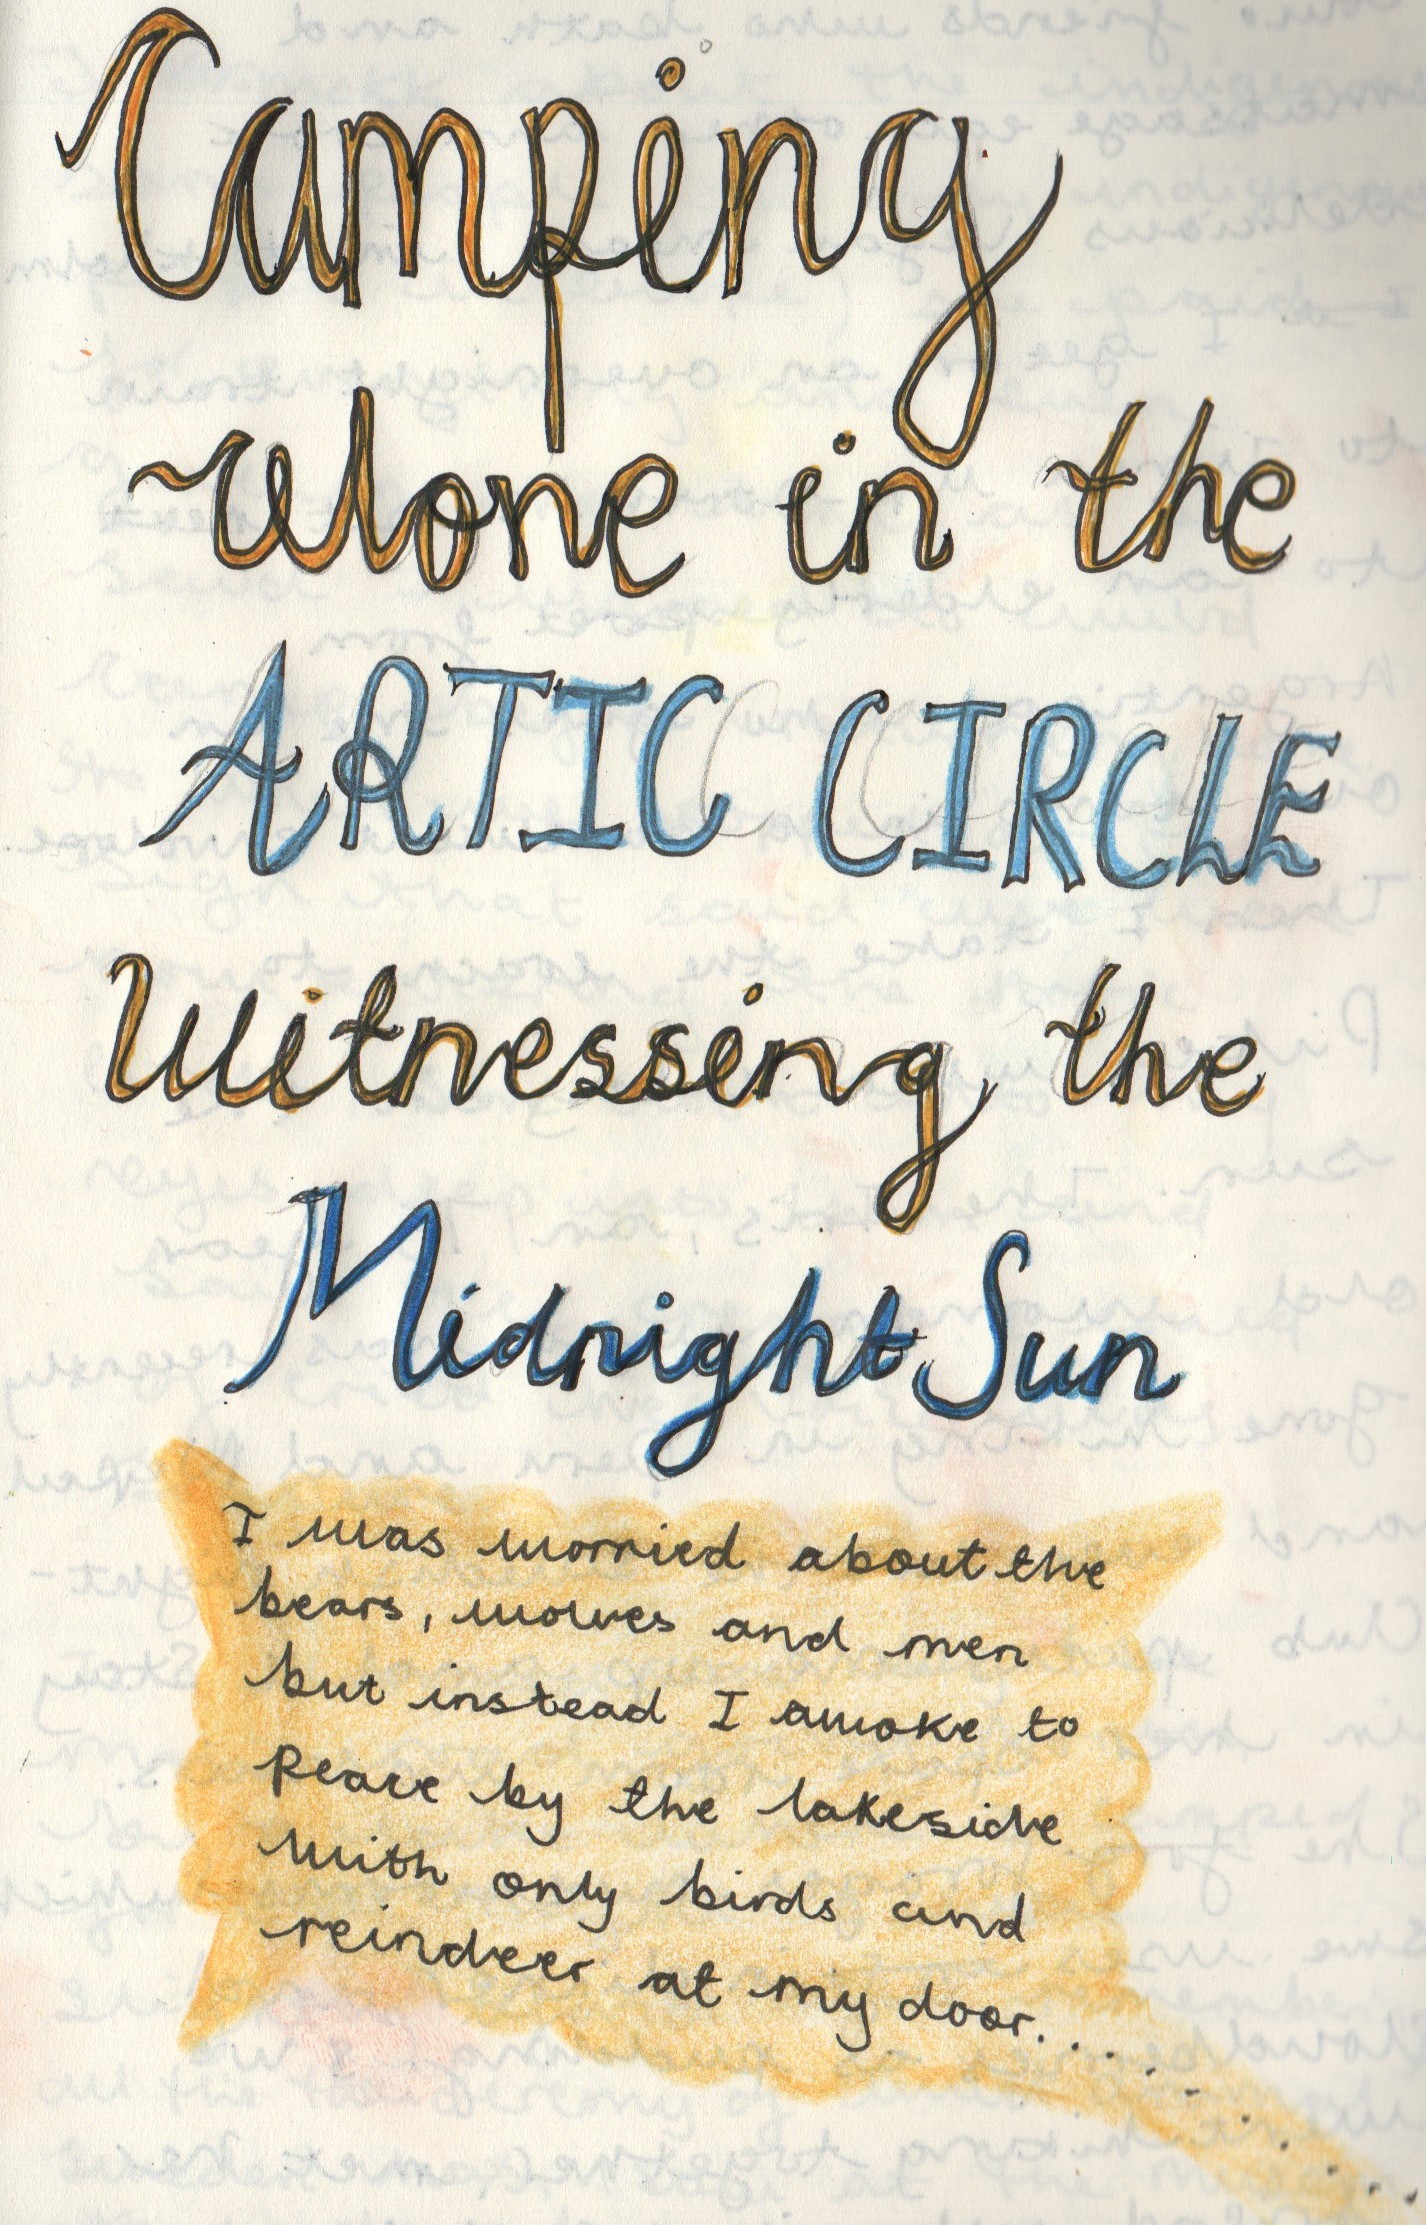 Camping
alone in the
ARTIC CIRCLE
Witnessing the
Midnight Sun
I was worried about the
bears, wolves and men
but instead I awoke to
peace by the lakeside
with only birds and
reindeer at my door........